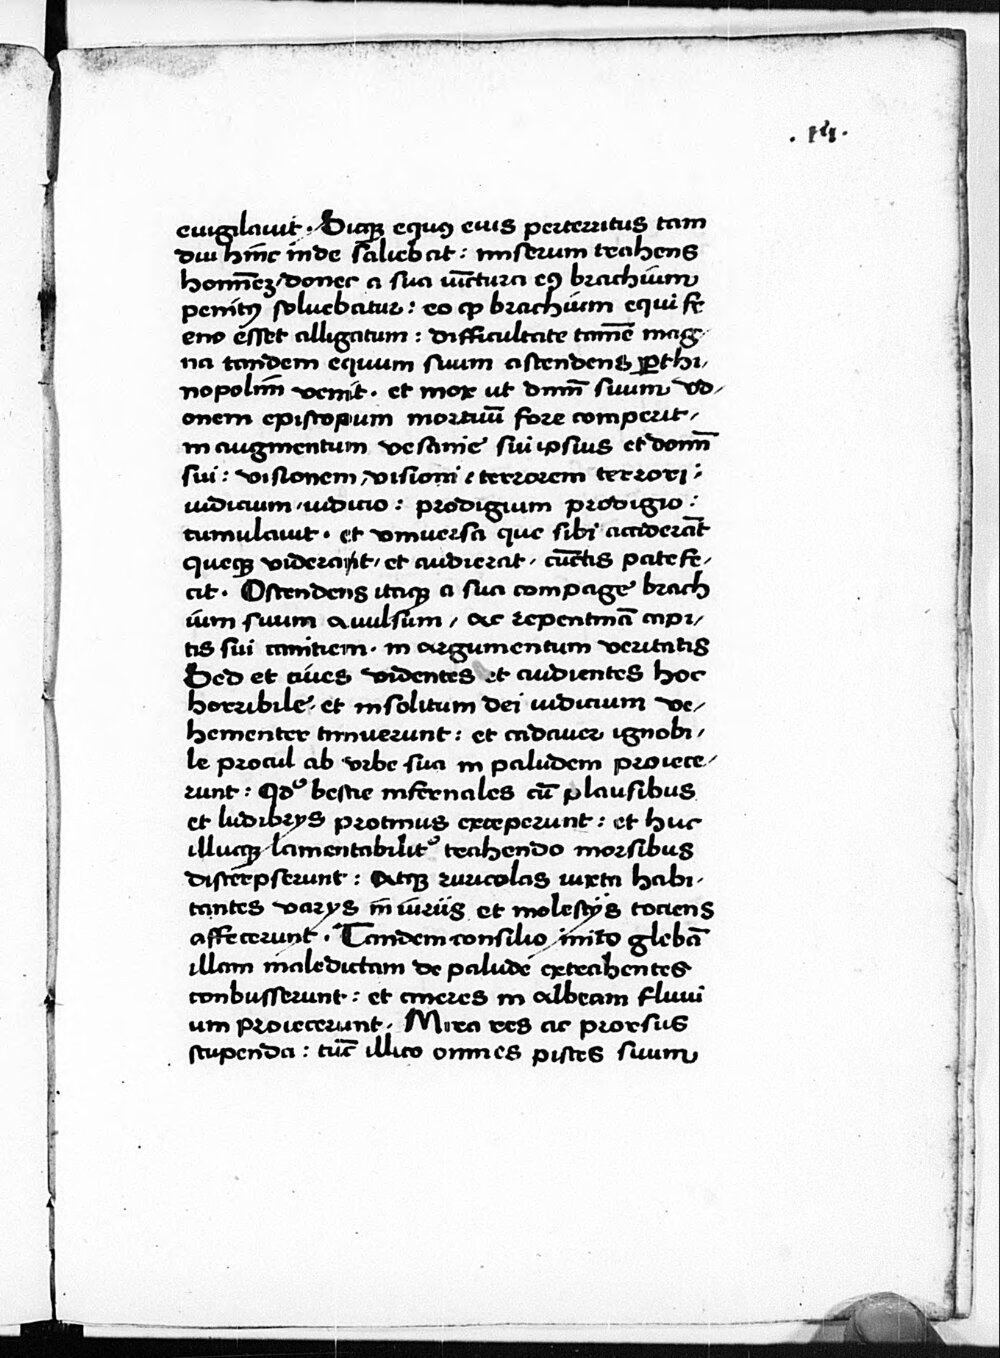 . 14 .
euigilauit. Sicq; equꝰ eius perterritus tam
diu hinc inde saliebat: miserum trahens
hominēꝫ/ donec a sua iūctura eꝰ brachium
penitꝰ soluebatur: eo ꝙ brachium equi fe
eno esset alligatum: difficultate tamē mag-
na tandem equum suum ascendens ꝑthi/
nopolim̄ venit. et mox ut dnm̄ suum vd/
onem episcopum mortuū fore comperit/
in augmentum vesanie sui ipsius et domī
sui: visionem/ visioni: terrorem terrori:
iudicium iudicio: prodigium prodigio:
tumulauit. et vniuersa que sibi acciderāt
queq; viderant/ et audierat/ cūctis patefe/
cit. Ostendens itaq; a sua compage brach
ium suum auulsum/ ac repentinā capi/
tis sui canitiem. in argumentum veritatis
Sed et ciues videntes et audientes hoc
horribile/ et insolitum dei iudicium ve/
hementer timuerunt: et cadauer ignobi/
le procul ab vrbe sua in paludem proiece/
runt: Qdͦ bestie infernales cū plausibus
et ludibrijs protinus exceperunt: et huc
illucq; lamentabilitͦ trahendo morsibus
discerpserunt: Atq; ruricolas iuxta habi-
tantes varijs iniurijs et molestijs tociens
affecerunt. Tandem consilio inito glebā
illam maledictam de palude extrahentes
conbusserunt: et cineres in albeam fluui
um proiecerunt. Mira res ac prorsus
stupenda: tūc illico omnes pisces suum